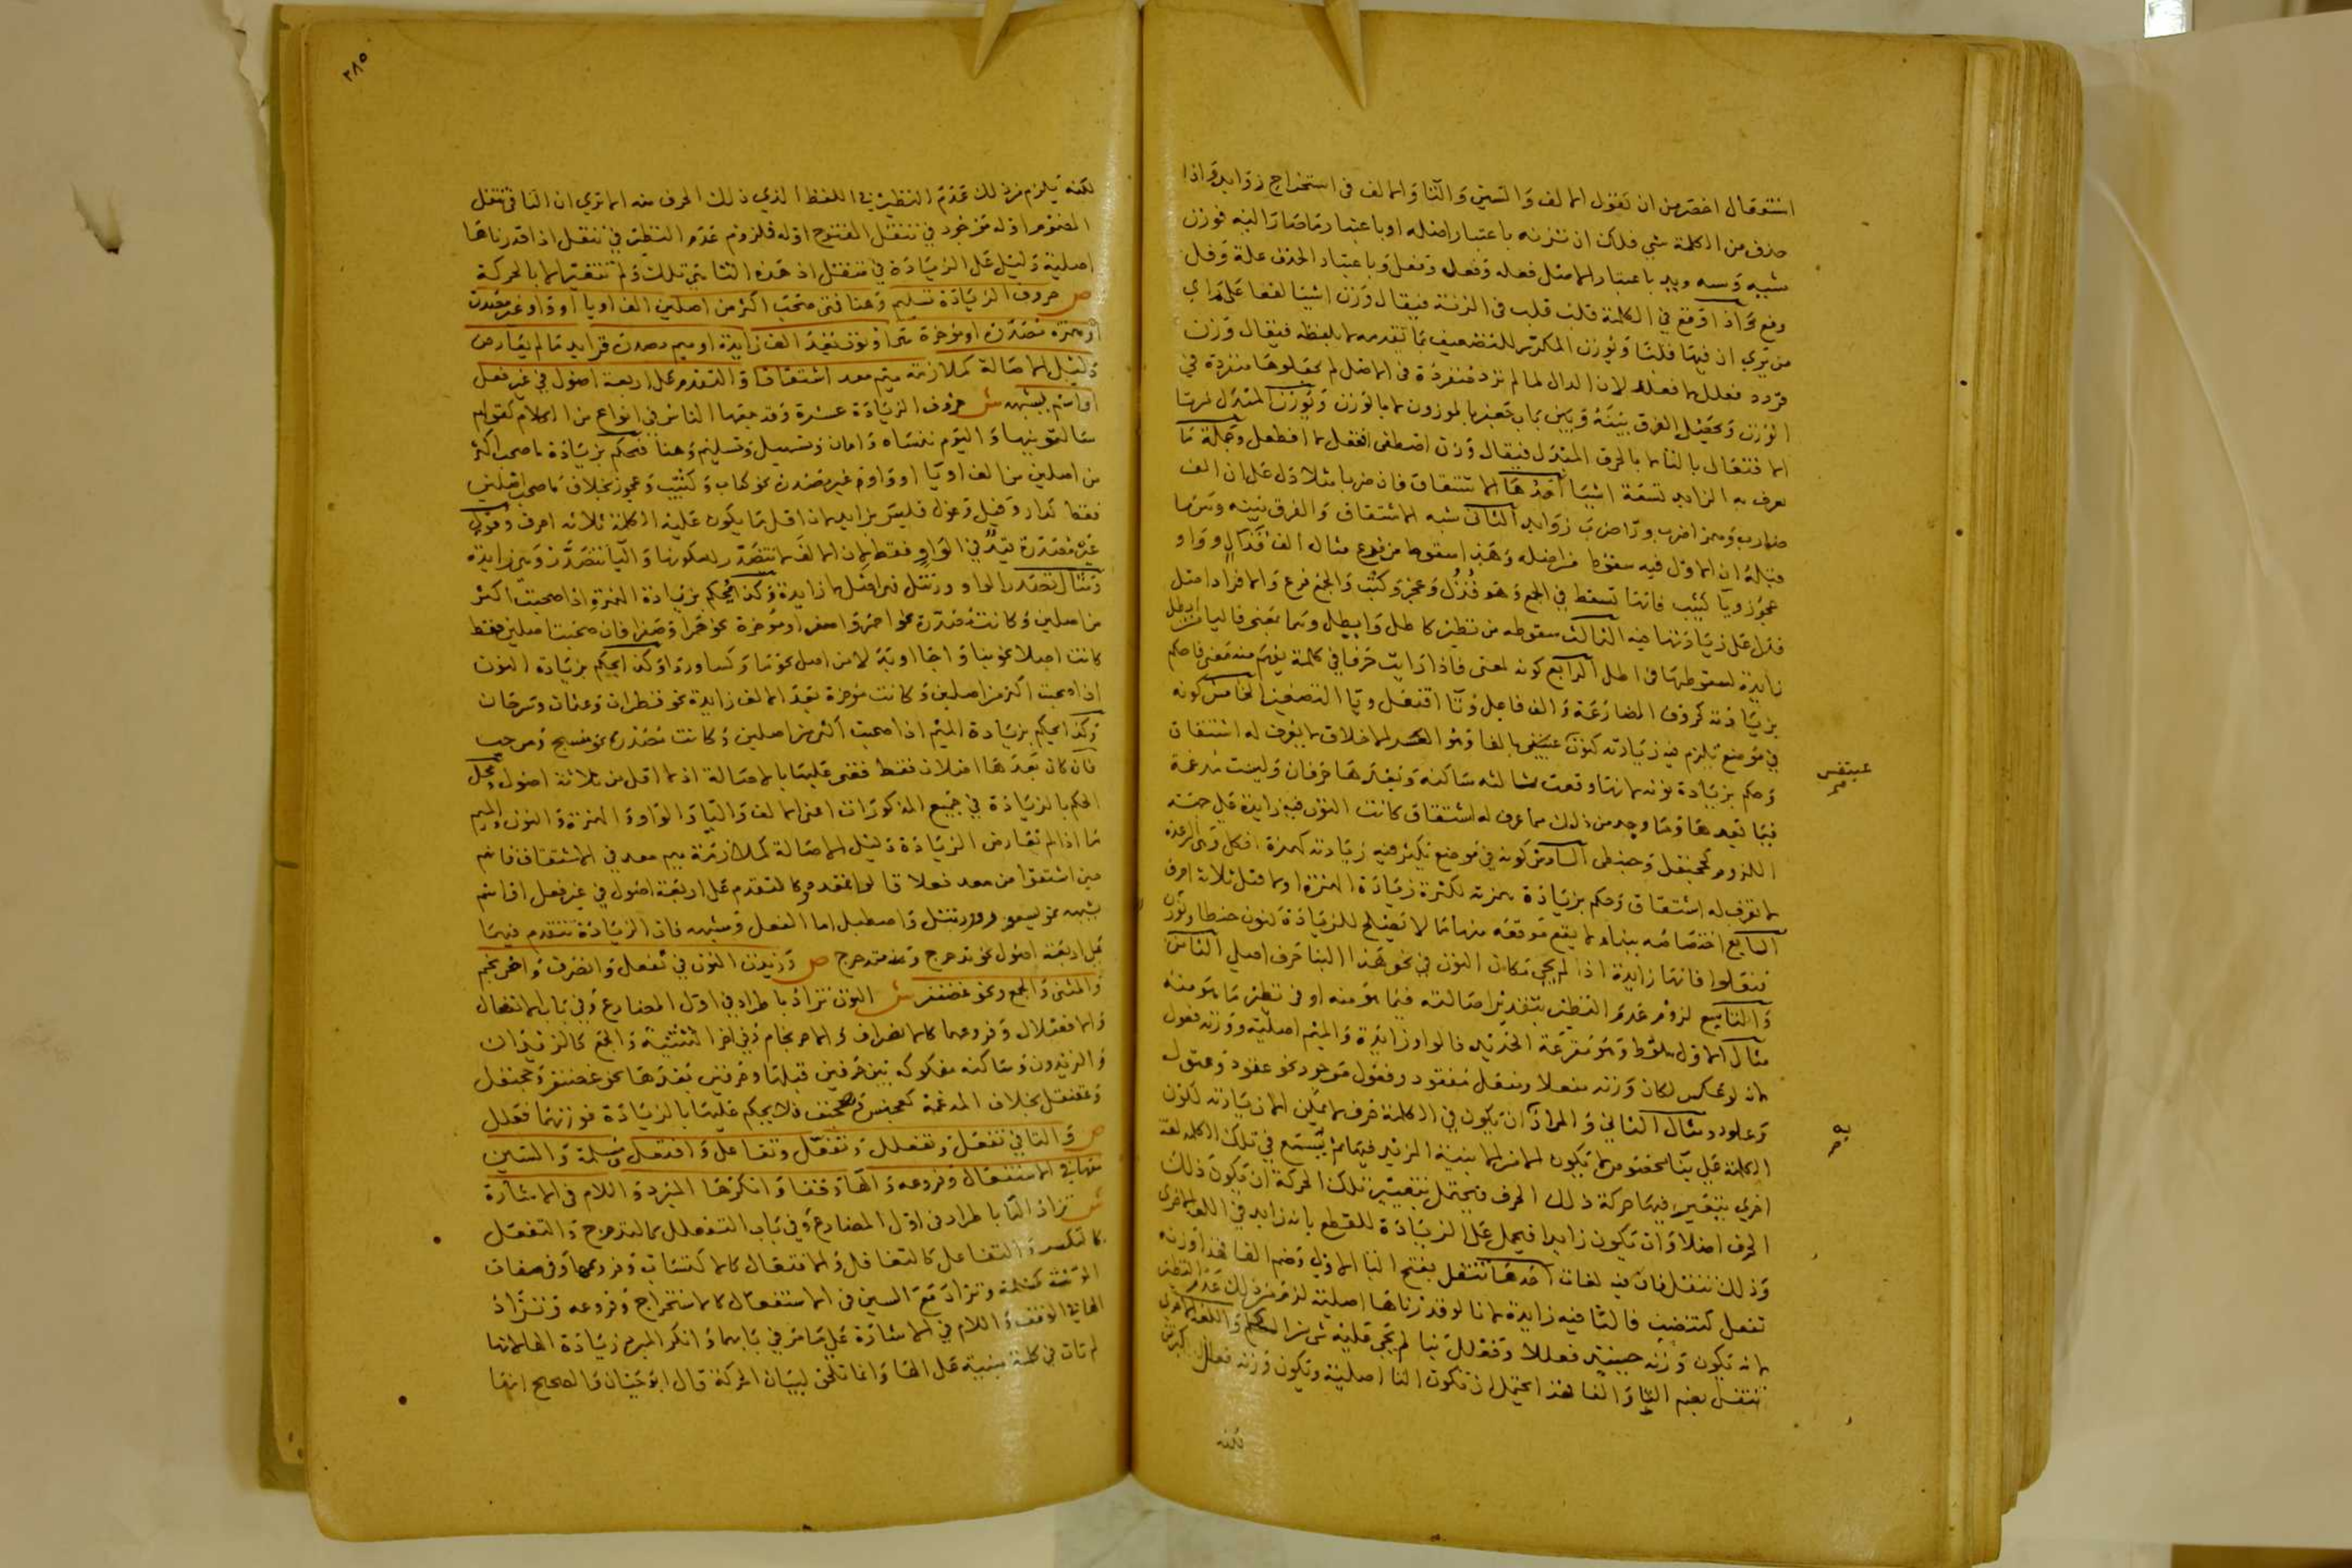 استفعال اخصر من ان تقول الالف والسين والتا والالف فى استخراج زوايد واذا
حذف من الكلمة شي فلك ان تزنه باعتبار اصله او باعتبار ما صار اليه فوزن
شيه وسه ويد باعتبار الاصل فعله وفعل وفعل وباعتبار الحذف علة وفل
وفع واذا وقع في الكلمة قلب قلب فى الزنة فيقال وزن اشيا لفعا على راي
من يري ان فيها قلبا ويوزن المكرر للتضعيف بما تقدمه لا بلفظه فيقال وزن
قردد فعلل لا فعلد لان الدال لما لم تزد منفردة فى الاصل لم يجعلوها منفردة في
الوزن ويحصل الفرق بينه وبين باب جعفر بالموزون لا بالوزن ويوزن المبدل من تا
الافتعال بالتا لا بالحرف المبدل فيقال وزن اصطفى افتعل لا افطعل وجملة ما
يعرف به الزايد تسعة اشيا احدها الاشتقاق فان ضربا مثلا دل على ان الف
ضارب وهمز اضرب وواو ضروب زوايد الثانى شبه الاشتقاق والفرق بينه وبين ما
قبله ان الاول فيه سقوط من اصله وهذا سقوط من فرع مثاله الف قذال وواو
عجوز ويا كثيب فانها تسقط في الجمع وهو قذل وعجز وكثب والجمع فرع والافراد اصل
فدل على زيادتها فيه الثالث سقوطه من نظير كاطل وايطل وهما بمعنى فاليا من ايطل
زايدة لسقوطها فى اطل الرابع كونه لمعنى فاذا رايت حرفا في كلمة يفهم منه معنى فاحكم
بزيادته كحروف المضارعة والف فاعل وتا افتعل ويا التصغير الخامس كونه
في موضع يلزم فيه زيادته كنون عبنقس بالفا وهو العسر الاخلاق لا يعرف له اشتقاق
عبنقس
صح
وحكم بزيادة نونه لانها وقعت ثالثه ساكنة وبعدها حرفان وليست مدغمة
فيما بعدها وما وجد من ذلك مما عرف له اشتقاق كانت النون فيه زايدة على جهة
اللزوم كجحنفل وحبنطى السادس كونه في موضع تكثر فيه زيادته كهمزة افكل وهي الرعدة
لا تعرف له اشتقاق وحكم بزيادة همزته لكثرة زيادة الهمزة اولا قبل ثلاثة احرف
السابع اختصاصه ببناء لا يقع موقعه منها ما لا يصلح للزيادة كنون حنطاو ونون
كنتاو فانها زايدة اذ لم يجي مكان النون في نحو هذا البنا حرف اصلي الثامن
والتاسع لزوم عدم النظير بتقدير اصالته فيما هو منه او فى نظير ما هو منه
مثال الاول ملوط وهو مقرعة الحديد فالواو زايدة والميم اصلية ووزنه فعول
لانه لو عكس لكان وزنه مفعلا ومفعل مفقود وفعول موجود نحو عقود وعتول
وعلود ومثال الثاني والمراد ان يكون في الكلمة حرف لا يمكن الا زيادته لكون
به
صح
الكلمة على بنا مخصوص لا يكون الا من الابنية المزيد فيها ثم يسمع في تلك الكلمة لغة
اخري بتغيير فيها حركة ذلك الحرف فيحتمل بتغيير تلك الحركة ان تكون ذلك
الحرف اصلا وان يكون زايدا فيحمل على الزيادة للقطع بانه زايد في اللغة الاخرى
وذلك تتفل فان فيه لغات احدها تتفل بفتح التا الاولى وضم الفا فهذا وزنه
تفعل كتنضب فالتا فيه زايدة لانا لو قدرناها اصلية لزم من ذلك عدم النظير
لانه يكون وزنه حينيذ فعللا وفعلل بنا لم يجي عليه شي من الكلام واللغة الاخرى
تتفل بضم التا والفا فهذا يحتمل ان تكون التا اصلية ويكون وزنه فعلل كبرثن
لكنه
٢٨٥
لكنه يلزم من ذلك عدم النظير في اللفظ الذي ذلك الحرف منه الا تري ان التا في تتفل
المضموم اوله موجود في تتفل المفتوح اوله فلزوم عدم النظير في تتفل اذا قدرناها
اصلية دليل على الزيادة في تتفل اذ هذه التا هي تلك ولم تتغير الا بالحركة
ص حروف الزيادة تسليم وهنا فتى صحب اكثر من اصلين الف او يا او واو غير مصدرة
او همزة مصدرة او مؤخرة هي او نون بعد الف زايدة او ميم مصدرة فزايد ما لم يعارض
دليل الاصالة كملازمة ميم معد اشتقاقا والتقدم على اربعة اصول في غير فعل
او اسم يشبهه ش حروف الزيادة عشرة وقد جمعها الناس في انواع من الكلام كقولهم
سالتمونيها واليوم تنساه وامان وتسهيل وتسليم وهنا فيحكم بزيادة ما صحب اكثر
من اصلين من الف او يا او واو غير مصدرة نحو كتاب وكثيب وعجوز بخلاف ما صحب اصلين
فقط كدار وفيل وغول فليس بزايد لان اقل ما يكون عليه الكلمة ثلاثة احرف وقوله
غير مصدرة قيد في الواو فقط لان الالف لا تتصدر لسكونها واليا تتصدر وهي زايدة
ومثال تصدر الواو ورنتل فهي اصل لا زايدة وكذا يحكم بزيادة الهمزة اذا صحبت اكثر
من اصلين وكانت مصدرة نحو احمر واصفر او مؤخرة نحو حمرا وصفرا فان صحبت اصلين فقط
كانت اصلا نحو بنا واجا او بدلا من اصل نحو ما وكسا وردا وكذا يحكم بزيادة النون
اذا صحبت اكثر من اصلين وكانت مؤخرة بعد الالف زايدة نحو قطران وعثمان وسرحان
وكذا يحكم بزيادة الميم اذا صحبت اكثر من اصلين وكانت مصدرة نحو منسج ومرحب
فان كان بعدها اصلان فقط قضى عليها بالاصالة اذ لا اقل من ثلاثة اصول ومحل
الحكم بالزيادة في جميع المذكورات اعنى الالف واليا والواو والهمزة والنون والميم
ما اذا لم تعارض الزيادة دليل الاصالة كملازمة ميم معد في الاشتقاق فانهم
حين اشتقوا من معد فعلا قالوا تمعدد وكالتقدم على اربعة اصول في غير فعل او اسم
يشبهه نحو يستعور وورنتل واصطبل اما الفعل وشبهه فان الزيادة تتقدم فيهما
على اربعة اصول نحو تدحرج ومتدحرج ص وزيدت النون في نفعل وانصرف واحرنجم
والمثنى والجمع ونحو غضنفر ش النون تزاد باطراد في اول المضارع وفي باب الانفعال
والافعنلال وفروعهما كالانصراف والاحرنجام وفي اخر التثنية والجمع كالزيدان
والزيدون وساكنة مفكوكة بين حرفين قبلها وحرفين بعدها نحو غضنفر وجحنفل
وعقنقل بخلاف المدغمة كعجنس وهجنف فلا يحكم عليها بالزيادة فوزنهما فعلل
ص والتا في تفعل وتفعلل وتفعل وتفاعل وافتعل ومسلمة والسين
معها في الاستفعال وفروعه والها وقفا وانكرها المبرد واللام فى الاشارة
ش تزاد التا باطراد فى اول المضارع وفي باب التفعلل كالتدحرج والتفعل
كالتكسر والتفاعل كالتغافل والافتعال كالاكتساب وفروعها وفى صفات
المؤنثة كمسلمة وتزاد مع السين فى الاستفعال كالاستخراج وفروعه وتزاد
الها في الوقف واللام في الاشارة على ما مر في بابهما وانكر المبرد زيادة الها لانها
لم تات في كلمة مبنية على الها وانما تلحق لبيان الحركة قال ابو حيان والصحيح انها